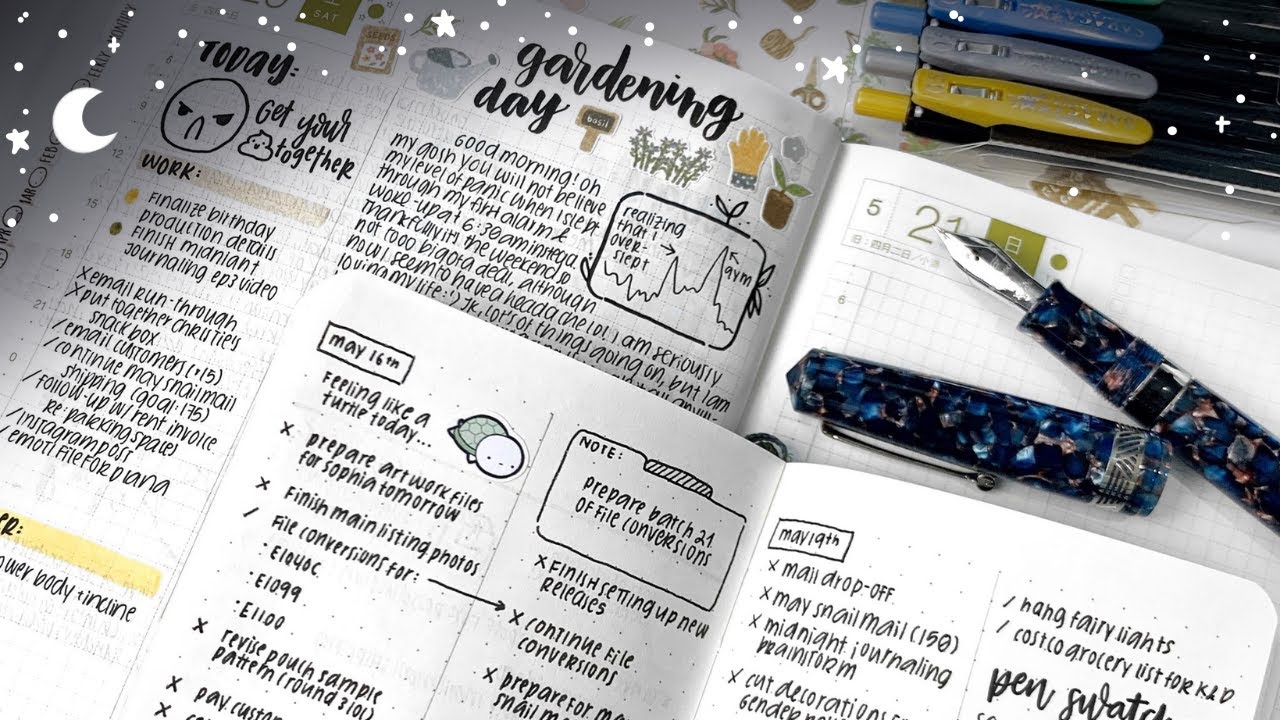 SAT
SEEDS
TODAY:
Get your
together
WORK:
Finalize birthday
production details
Finish maniant
journaling ep3 video
x email run-through
x put together christies
snack box
/ email customers (x15)
/ continue may snail mail
shipping (goal: 175)
/ follow-up w/ rent invoice
re: parking spaces
/ instagram post
/ emoti file for diana
ower body + incline
6
9
12
15
18
21
0
gardening
day
basil
good morning! oh
my gosh you will not believe
my level of panic when i slept
through my first alarm &
woke-up at 6:30am instead
thankfully it's the weekend so
not tooo big of a deal, although
now i seem to have a headache lol. I am seriously
loving my life :') Jk, lots of things going on, but I am
realizing
that i
over-
slept
gym
may 16th
Feeling like a
turtle today...
x prepare artwork files
for sophia tomorrow
x Finish main listing photos
/ File conversions for:
: E1040C
: E1099
: E1100
x revise pouch sample
pattern (round 3 lol)
x pay custom
NOTE:
prepare batch 21
of file conversions
x Finish setting up new
releases
x continue file
conversions
x prepare for ma
snail ma
5
21
日
旧:四月二日/小満
6
may 19th
x mail drop-off
x may snail mail (150)
x midnight journaling
brainstorm
x cut decorations
gender
/ hang fairy lights
/ costco grocery list for K&D
pen swatch